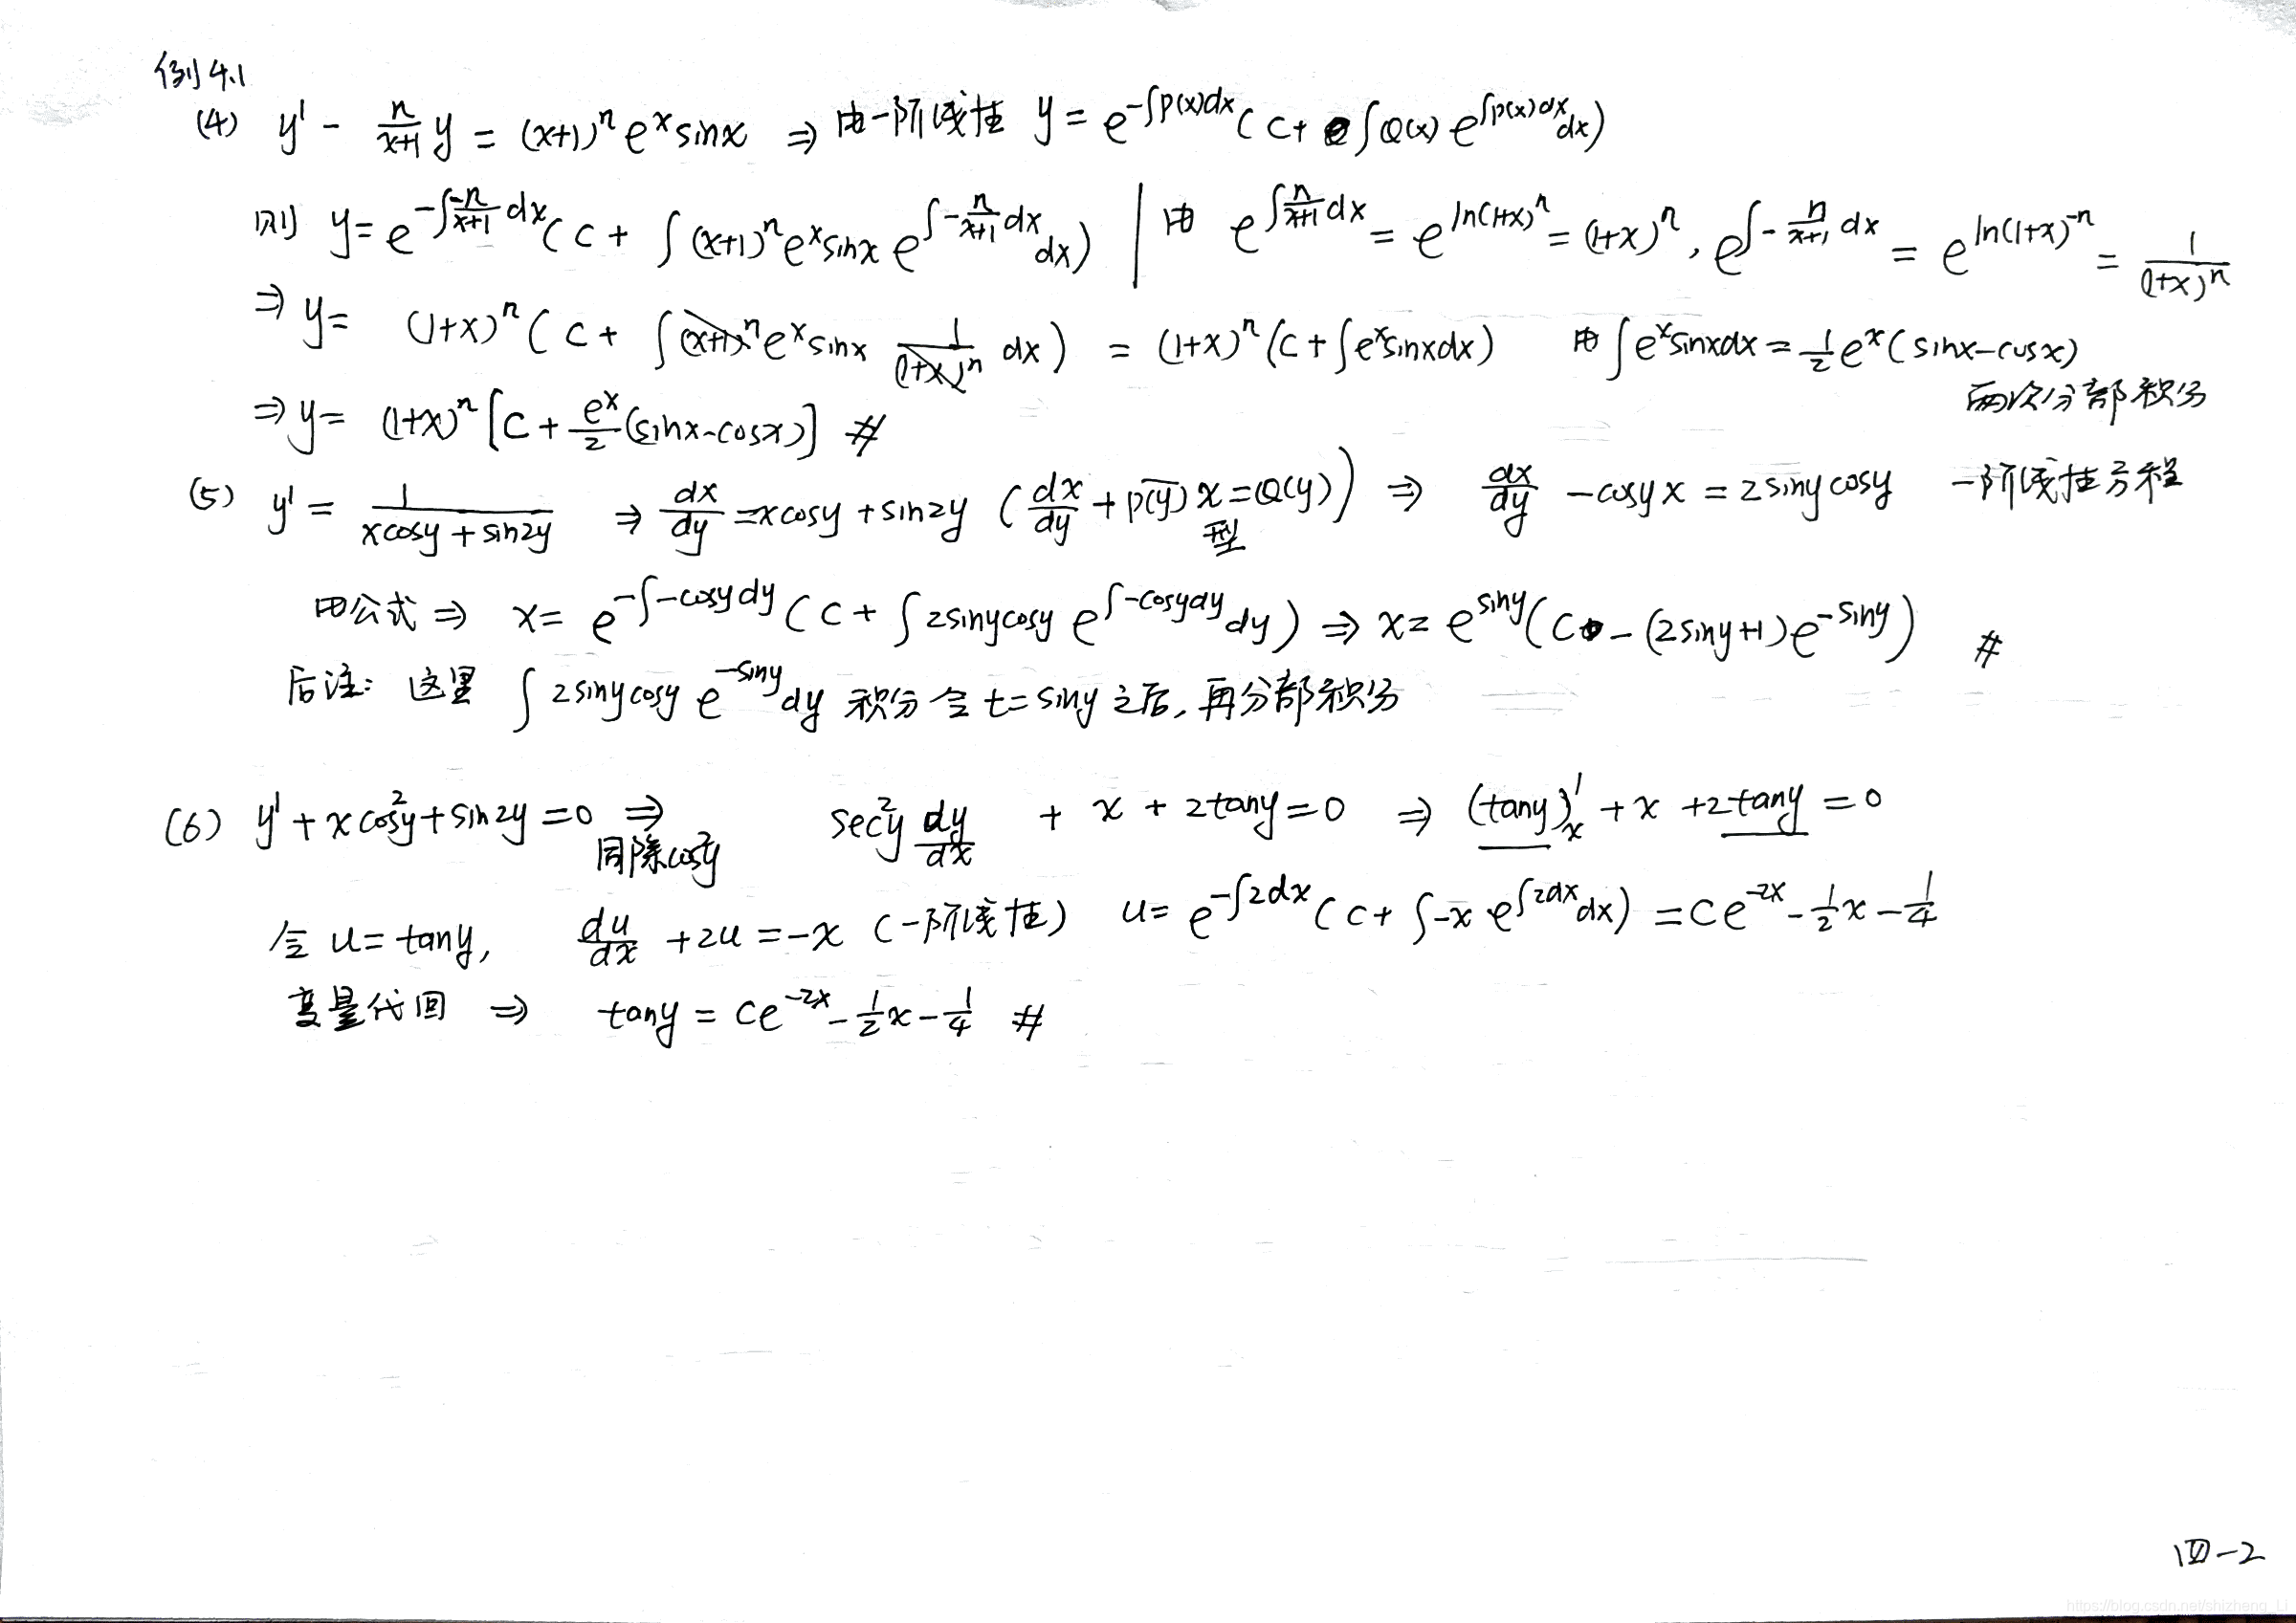 例4.1
(4) y' - n/(x+1) y = (x+1)^n e^x sinx ⇒ 由一阶线性 y = e^{-∫p(x)dx}( C + ∫Q(x) e^{∫p(x)dx}dx)
则 y = e^{-∫-n/(x+1) dx}( C + ∫(x+1)^n e^x sinx e^{∫-n/(x+1) dx}dx) | 由 e^{∫n/(x+1) dx} = e^{ln(1+x)^n} = (1+x)^n , e^{∫-n/(x+1) dx} = e^{ln(1+x)^{-n}} = 1/(1+x)^n
⇒ y = (1+x)^n ( C + ∫(x+1)^n e^x sinx 1/(1+x)^n dx ) = (1+x)^n (C + ∫e^x sinxdx) 由 ∫e^x sinxdx = 1/2 e^x ( sinx-cosx)
两次分部积分
⇒ y = (1+x)^n [C + e^x/2 (sinx-cosx)] #
(5) y' = 1/(xcosy + sin2y) ⇒ dx/dy = xcosy + sin2y ( dx/dy + p(y) x = Q(y) ) ⇒ dx/dy - cosy x = 2sinycosy 一阶线性方程
型
由公式 ⇒ x = e^{-∫-cosydy} ( C + ∫2sinycosy e^{∫-cosydy}dy ) ⇒ x = e^{siny}( C - (2siny+1)e^{-siny} ) #
后注: 这里 ∫2sinycosy e^{-siny}dy 积分令 t = siny 之后, 再分部积分
(6) y' + xcos²y + sin2y = 0 ⇒ sec²y dy/dx + x + 2tany = 0 ⇒ (tany)'_x + x + 2tany = 0
同除cos²y
令 u = tany, du/dx + 2u = -x (一阶线性) u = e^{-∫2dx} ( C + ∫-x e^{∫2dx}dx ) = Ce^{-2x} - 1/2 x - 1/4
变量代回 ⇒ tany = Ce^{-2x} - 1/2 x - 1/4 #
四-2
https://blog.csdn.net/shizheng_Li